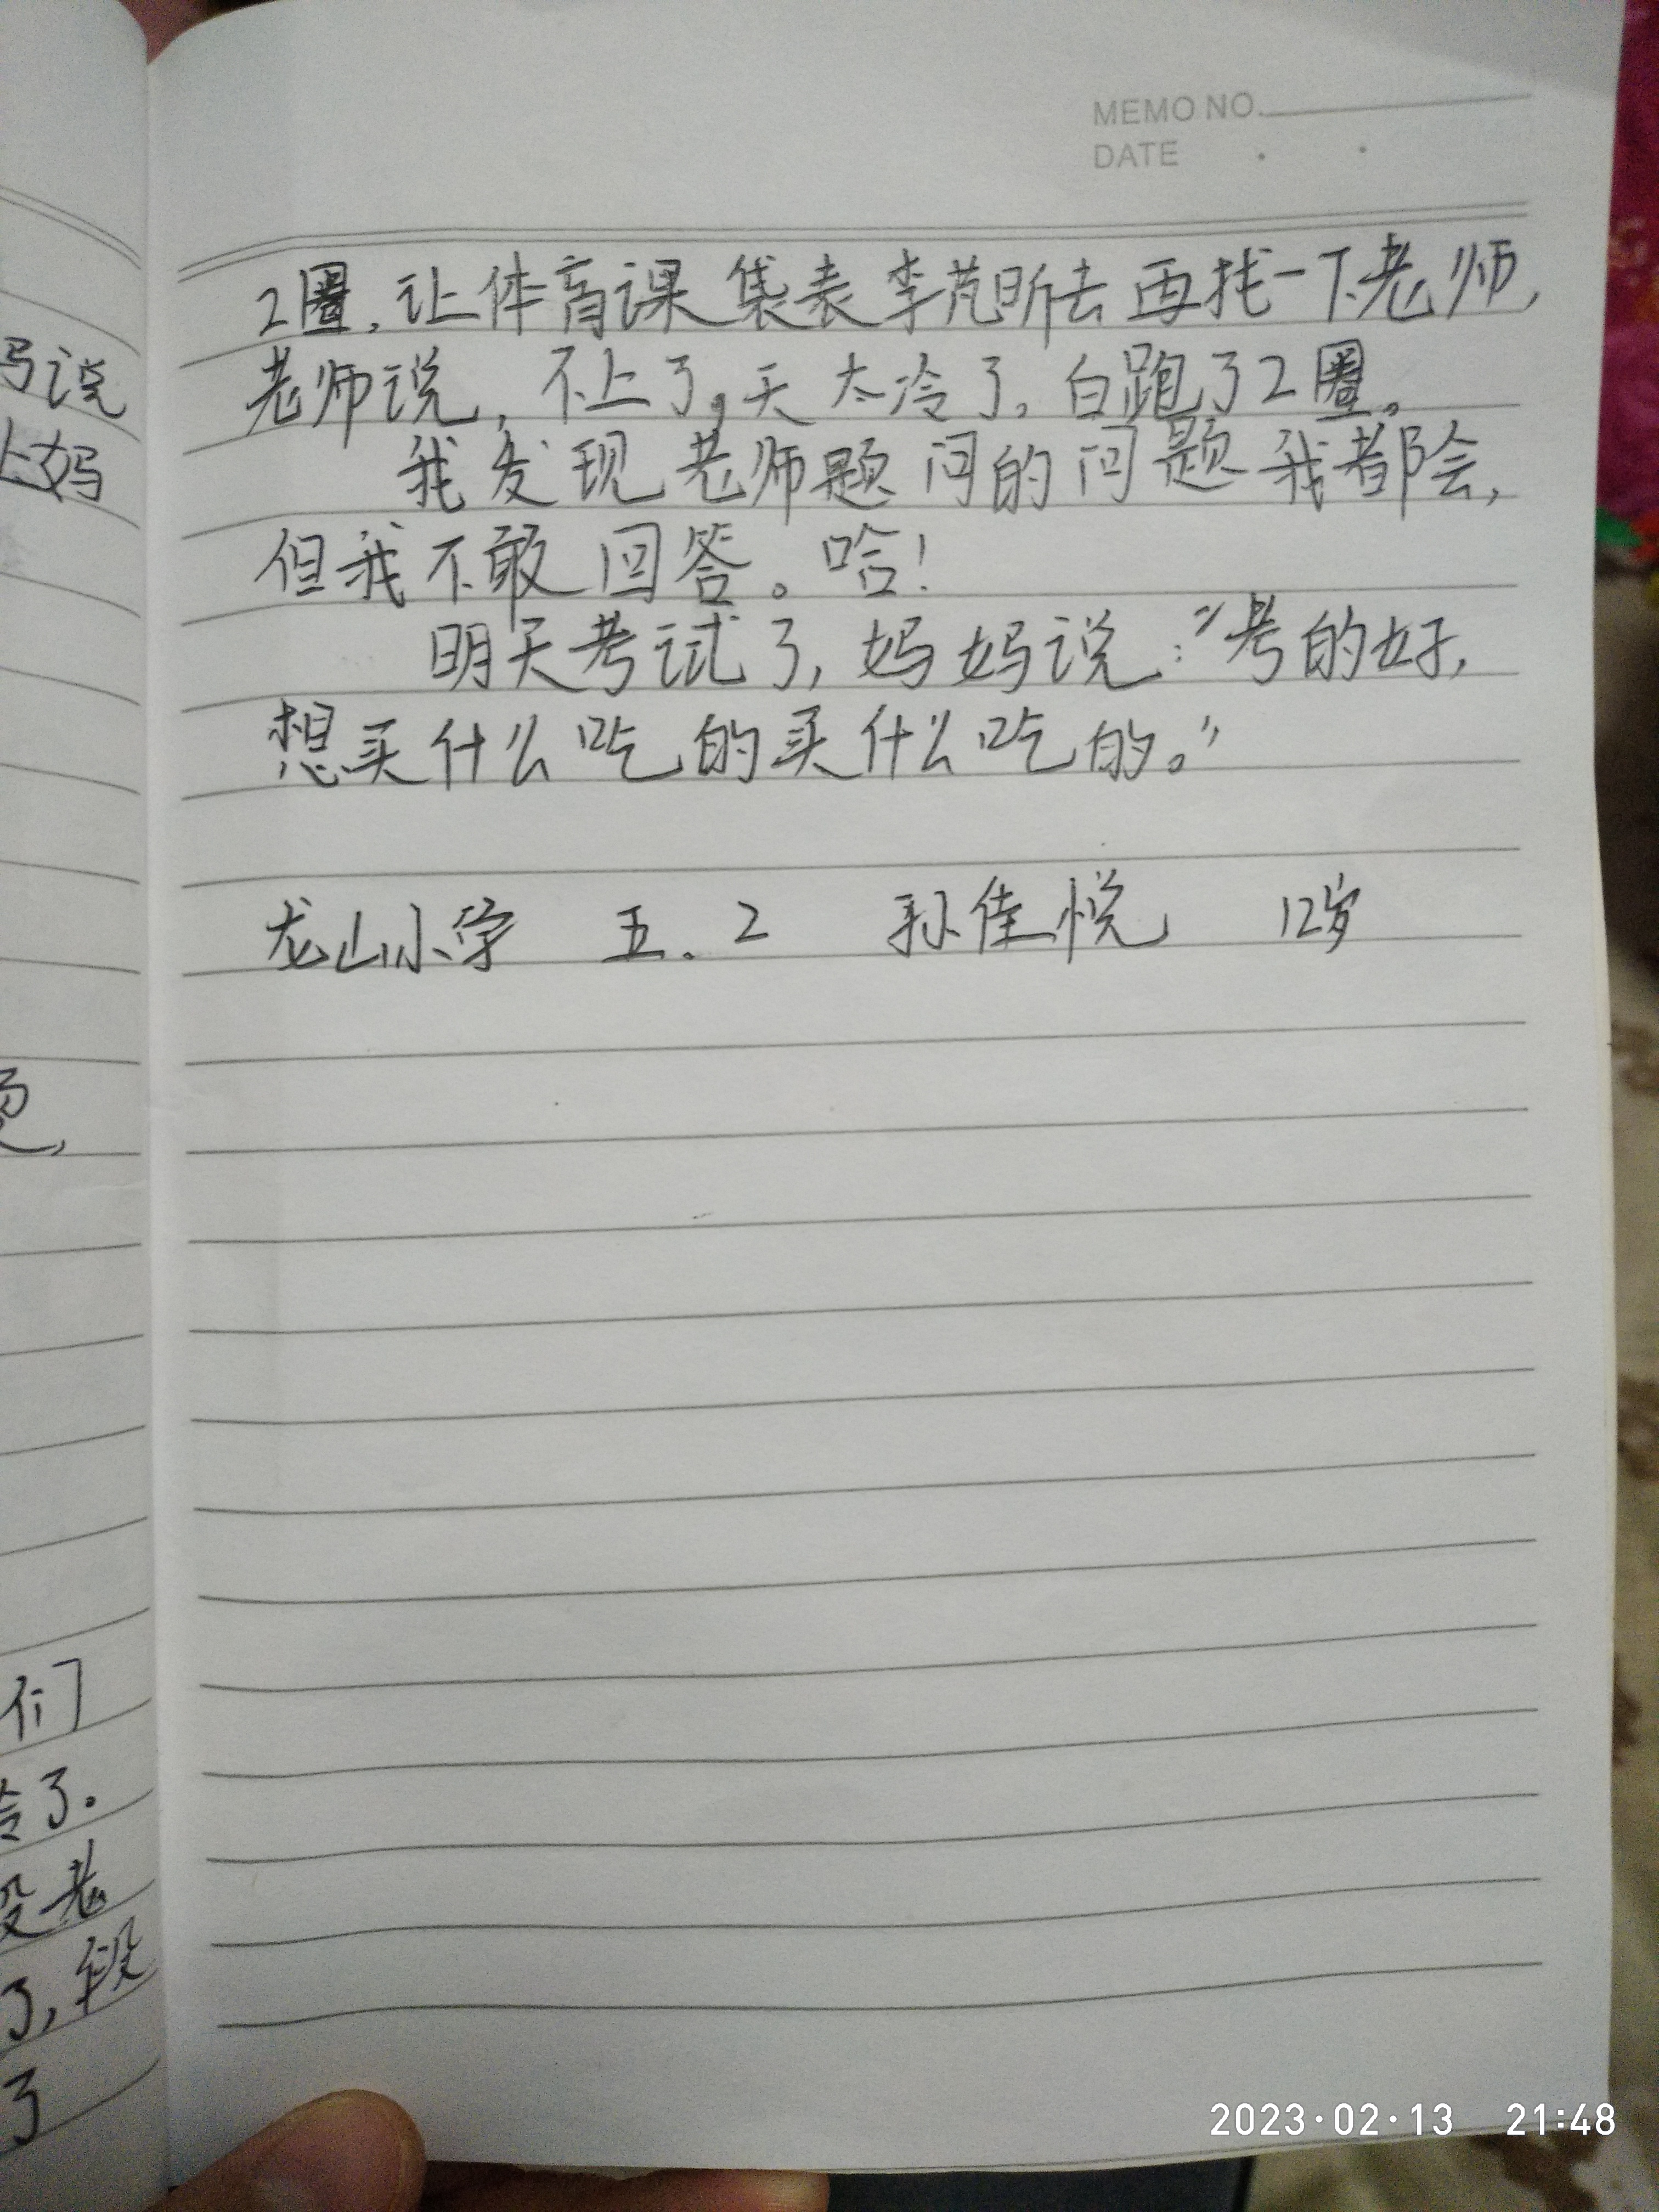 MEMO NO.
DATE
2圈,让体育课袋表李芃昕去再找一下老师,
老师说,不上了,天太冷了,白跑了2圈。
我发现老师题问的问题我都会,
但我不敢回答。哈!
明天考试了,妈妈说:“考的好,
想买什么吃的买什么吃的。”
龙山小学 五.2 孙佳悦 12岁
妈说
上妈
们
冷了.
没老
了,段
了
2023·02·13 21:48